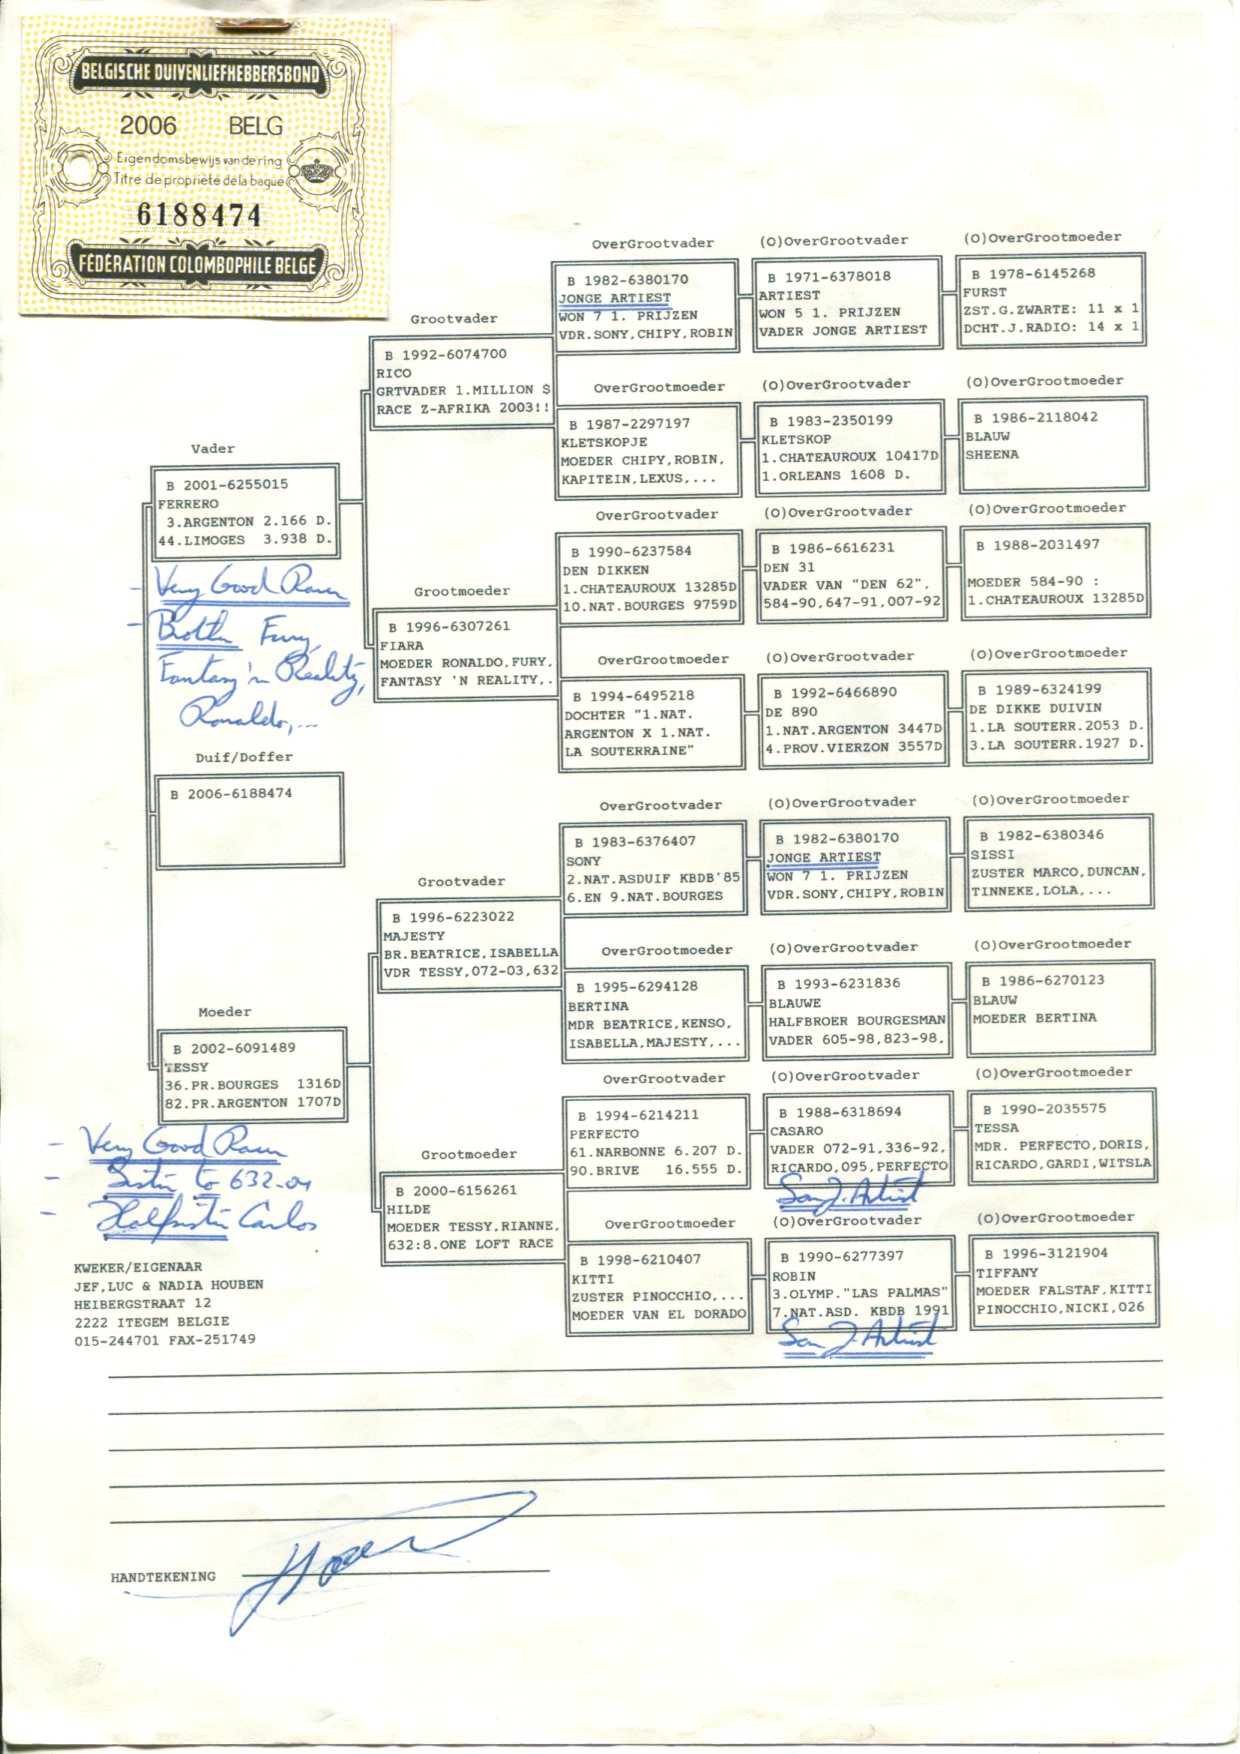 BELGISCHE DUIVENLIEFHEBBERSBOND
2006 BELG
Eigendomsbewijs van de ring
Titre de propriété de la bague
6188474
FÉDÉRATION COLOMBOPHILE BELGE
Vader
B 2001-6255015
FERRERO
3.ARGENTON 2.166 D.
44.LIMOGES 3.938 D.
- Very Good Racer
- Brother Fury,
Fantasy 'n Reality,
Ronaldo,...
Duif/Doffer
B 2006-6188474
Moeder
B 2002-6091489
TESSY
36.PR.BOURGES 1316D
82.PR.ARGENTON 1707D
- Very Good Racer
- Sister to 632-04
- Halfsister Carlos
KWEKER/EIGENAAR
JEF,LUC & NADIA HOUBEN
HEIBERGSTRAAT 12
2222 ITEGEM BELGIE
015-244701 FAX-251749
Grootvader
B 1992-6074700
RICO
GRTVADER 1.MILLION $
RACE Z-AFRIKA 2003!!
Grootmoeder
B 1996-6307261
FIARA
MOEDER RONALDO,FURY,
FANTASY 'N REALITY,.
Grootvader
B 1996-6223022
MAJESTY
BR.BEATRICE,ISABELLA
VDR TESSY,072-03,632
Grootmoeder
B 2000-6156261
HILDE
MOEDER TESSY,RIANNE,
632:8.ONE LOFT RACE
OverGrootvader
B 1982-6380170
JONGE ARTIEST
WON 7 1. PRIJZEN
VDR.SONY,CHIPY,ROBIN
OverGrootmoeder
B 1987-2297197
KLETSKOPJE
MOEDER CHIPY,ROBIN,
KAPITEIN,LEXUS,...
OverGrootvader
B 1990-6237584
DEN DIKKEN
1.CHATEAUROUX 13285D
10.NAT.BOURGES 9759D
OverGrootmoeder
B 1994-6495218
DOCHTER "1.NAT.
ARGENTON X 1.NAT.
LA SOUTERRAINE"
OverGrootvader
B 1983-6376407
SONY
2.NAT.ASDUIF KBDB'85
6.EN 9.NAT.BOURGES
OverGrootmoeder
B 1995-6294128
BERTINA
MDR BEATRICE,KENSO,
ISABELLA,MAJESTY,...
OverGrootvader
B 1994-6214211
PERFECTO
61.NARBONNE 6.207 D.
90.BRIVE 16.555 D.
OverGrootmoeder
B 1998-6210407
KITTI
ZUSTER PINOCCHIO,...
MOEDER VAN EL DORADO
(O)OverGrootvader
B 1971-6378018
ARTIEST
WON 5 1. PRIJZEN
VADER JONGE ARTIEST
(O)OverGrootvader
B 1983-2350199
KLETSKOP
1.CHATEAUROUX 10417D
1.ORLEANS 1608 D.
(O)OverGrootvader
B 1986-6616231
DEN 31
VADER VAN "DEN 62",
584-90,647-91,007-92
(O)OverGrootvader
B 1992-6466890
DE 890
1.NAT.ARGENTON 3447D
4.PROV.VIERZON 3557D
(O)OverGrootvader
B 1982-6380170
JONGE ARTIEST
WON 7 1. PRIJZEN
VDR.SONY,CHIPY,ROBIN
(O)OverGrootvader
B 1993-6231836
BLAUWE
HALFBROER BOURGESMAN
VADER 605-98,823-98,
(O)OverGrootvader
B 1988-6318694
CASARO
VADER 072-91,336-92,
RICARDO,095,PERFECTO
Son J. Artist
(O)OverGrootvader
B 1990-6277397
ROBIN
3.OLYMP."LAS PALMAS"
7.NAT.ASD. KBDB 1991
Son J. Artist
(O)OverGrootmoeder
B 1978-6145268
FURST
ZST.G.ZWARTE: 11 x 1
DCHT.J.RADIO: 14 x 1
(O)OverGrootmoeder
B 1986-2118042
BLAUW
SHEENA
(O)OverGrootmoeder
B 1988-2031497
MOEDER 584-90 :
1.CHATEAUROUX 13285D
(O)OverGrootmoeder
B 1989-6324199
DE DIKKE DUIVIN
1.LA SOUTERR.2053 D.
3.LA SOUTERR.1927 D.
(O)OverGrootmoeder
B 1982-6380346
SISSI
ZUSTER MARCO,DUNCAN,
TINNEKE,LOLA,...
(O)OverGrootmoeder
B 1986-6270123
BLAUW
MOEDER BERTINA
(O)OverGrootmoeder
B 1990-2035575
TESSA
MDR. PERFECTO,DORIS,
RICARDO,GARDI,WITSLA
(O)OverGrootmoeder
B 1996-3121904
TIFFANY
MOEDER FALSTAF,KITTI
PINOCCHIO,NICKI,026
HANDTEKENING